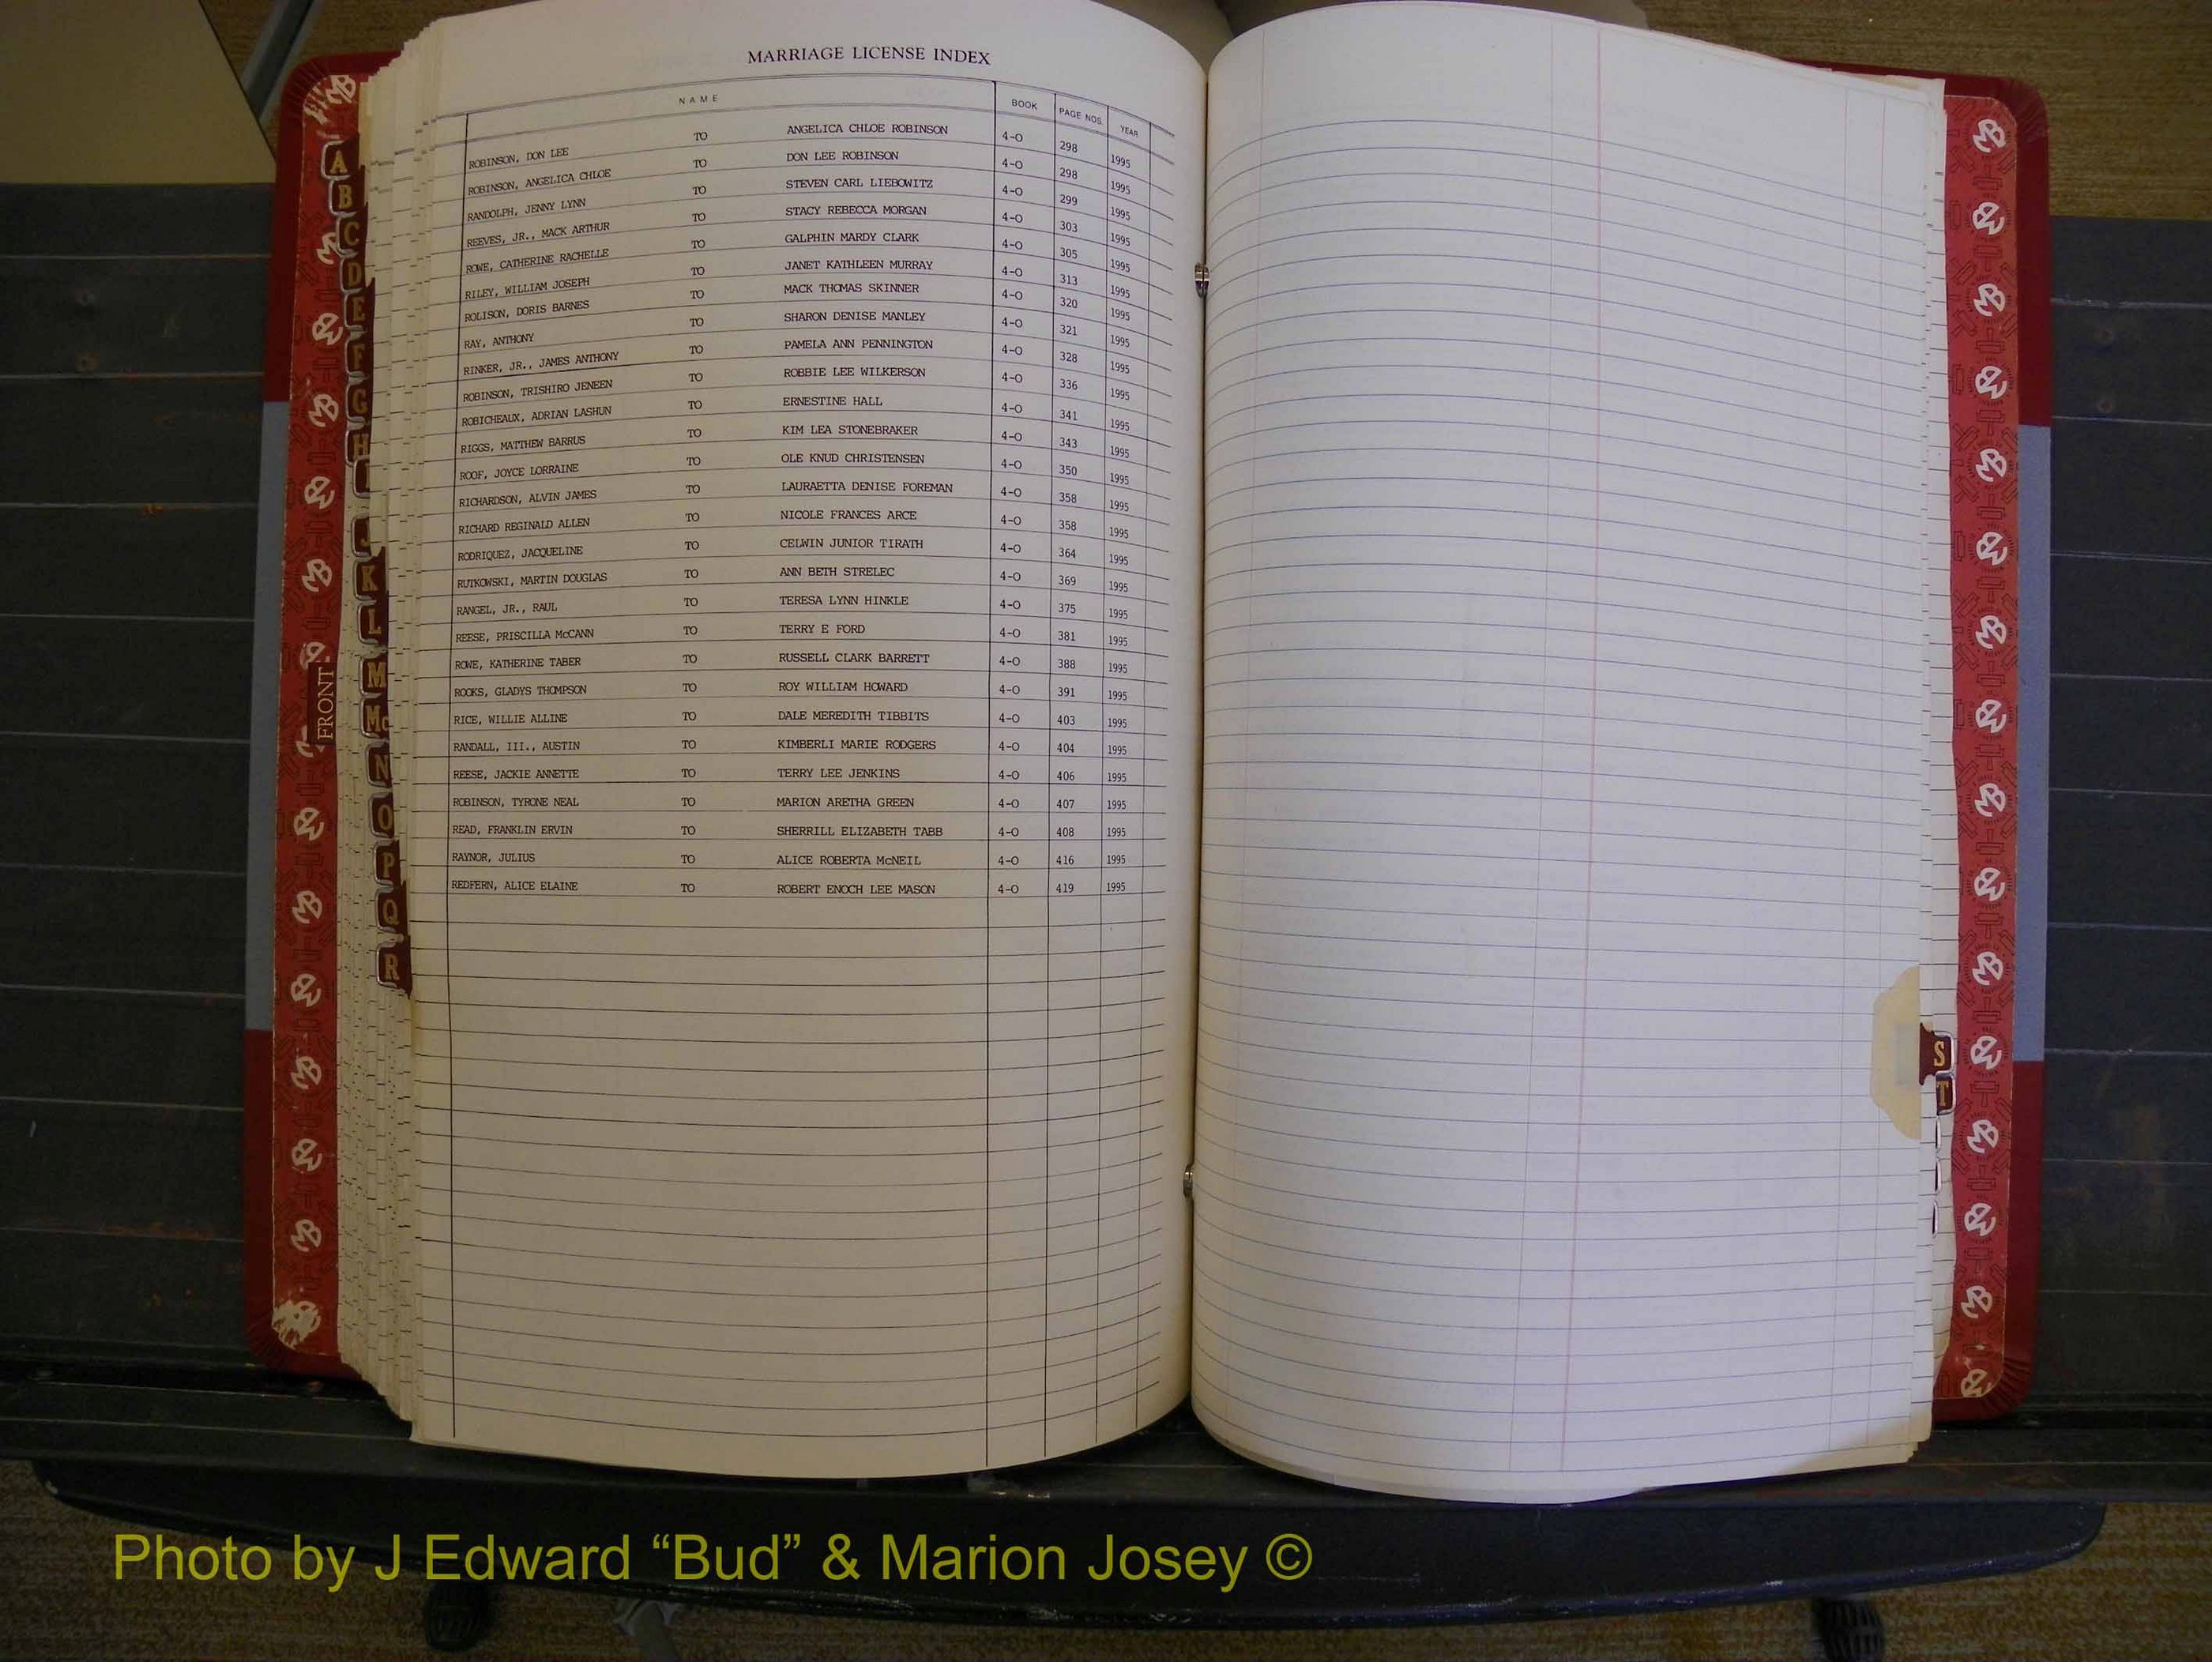 MARRIAGE LICENSE INDEX
NAME BOOK PAGE NOS. YEAR
ROBINSON, DON LEE TO ANGELICA CHLOE ROBINSON 4-O 298 1995
ROBINSON, ANGELICA CHLOE TO DON LEE ROBINSON 4-O 298 1995
RANDOLPH, JENNY LYNN TO STEVEN CARL LIEBOWITZ 4-O 299 1995
REEVES, JR., MACK ARTHUR TO STACY REBECCA MORGAN 4-O 303 1995
ROWE, CATHERINE RACHELLE TO GALPHIN MARDY CLARK 4-O 305 1995
RILEY, WILLIAM JOSEPH TO JANET KATHLEEN MURRAY 4-O 313 1995
ROLISON, DORIS BARNES TO MACK THOMAS SKINNER 4-O 320 1995
RAY, ANTHONY TO SHARON DENISE MANLEY 4-O 321 1995
RINKER, JR., JAMES ANTHONY TO PAMELA ANN PENNINGTON 4-O 328 1995
ROBINSON, TRISHIRO JENEEN TO ROBBIE LEE WILKERSON 4-O 336 1995
ROBICHEAUX, ADRIAN LASHUN TO ERNESTINE HALL 4-O 341 1995
RIGGS, MATTHEW BARRUS TO KIM LEA STONEBRAKER 4-O 343 1995
ROOF, JOYCE LORRAINE TO OLE KNUD CHRISTENSEN 4-O 350 1995
RICHARDSON, ALVIN JAMES TO LAURAETTA DENISE FOREMAN 4-O 358 1995
RICHARD REGINALD ALLEN TO NICOLE FRANCES ARCE 4-O 358 1995
RODRIQUEZ, JACQUELINE TO CELWIN JUNIOR TIRATH 4-O 364 1995
RUTKOWSKI, MARTIN DOUGLAS TO ANN BETH STRELEC 4-O 369 1995
RANGEL, JR., RAUL TO TERESA LYNN HINKLE 4-O 375 1995
REESE, PRISCILLA McCANN TO TERRY E FORD 4-O 381 1995
ROWE, KATHERINE TABER TO RUSSELL CLARK BARRETT 4-O 388 1995
ROOKS, GLADYS THOMPSON TO ROY WILLIAM HOWARD 4-O 391 1995
RICE, WILLIE ALLINE TO DALE MEREDITH TIBBITS 4-O 403 1995
RANDALL, III., AUSTIN TO KIMBERLI MARIE RODGERS 4-O 404 1995
REESE, JACKIE ANNETTE TO TERRY LEE JENKINS 4-O 406 1995
ROBINSON, TYRONE NEAL TO MARION ARETHA GREEN 4-O 407 1995
READ, FRANKLIN ERVIN TO SHERRILL ELIZABETH TABB 4-O 408 1995
RAYNOR, JULIUS TO ALICE ROBERTA McNEIL 4-O 416 1995
REDFERN, ALICE ELAINE TO ROBERT ENOCH LEE MASON 4-O 419 1995
A
B
C
D
E
F
G
H
I
J
K
L
M
Mc
N
O
P
Q
R
FRONT
S
T
Photo by J Edward “Bud” & Marion Josey ©